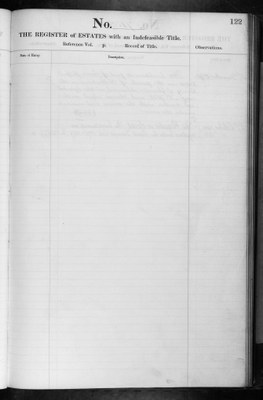 No.
122
THE REGISTER of ESTATES with an Indefeasible Title.
Reference Vol. p. Record of Title.
Observations.
Date of Entry.
Description.